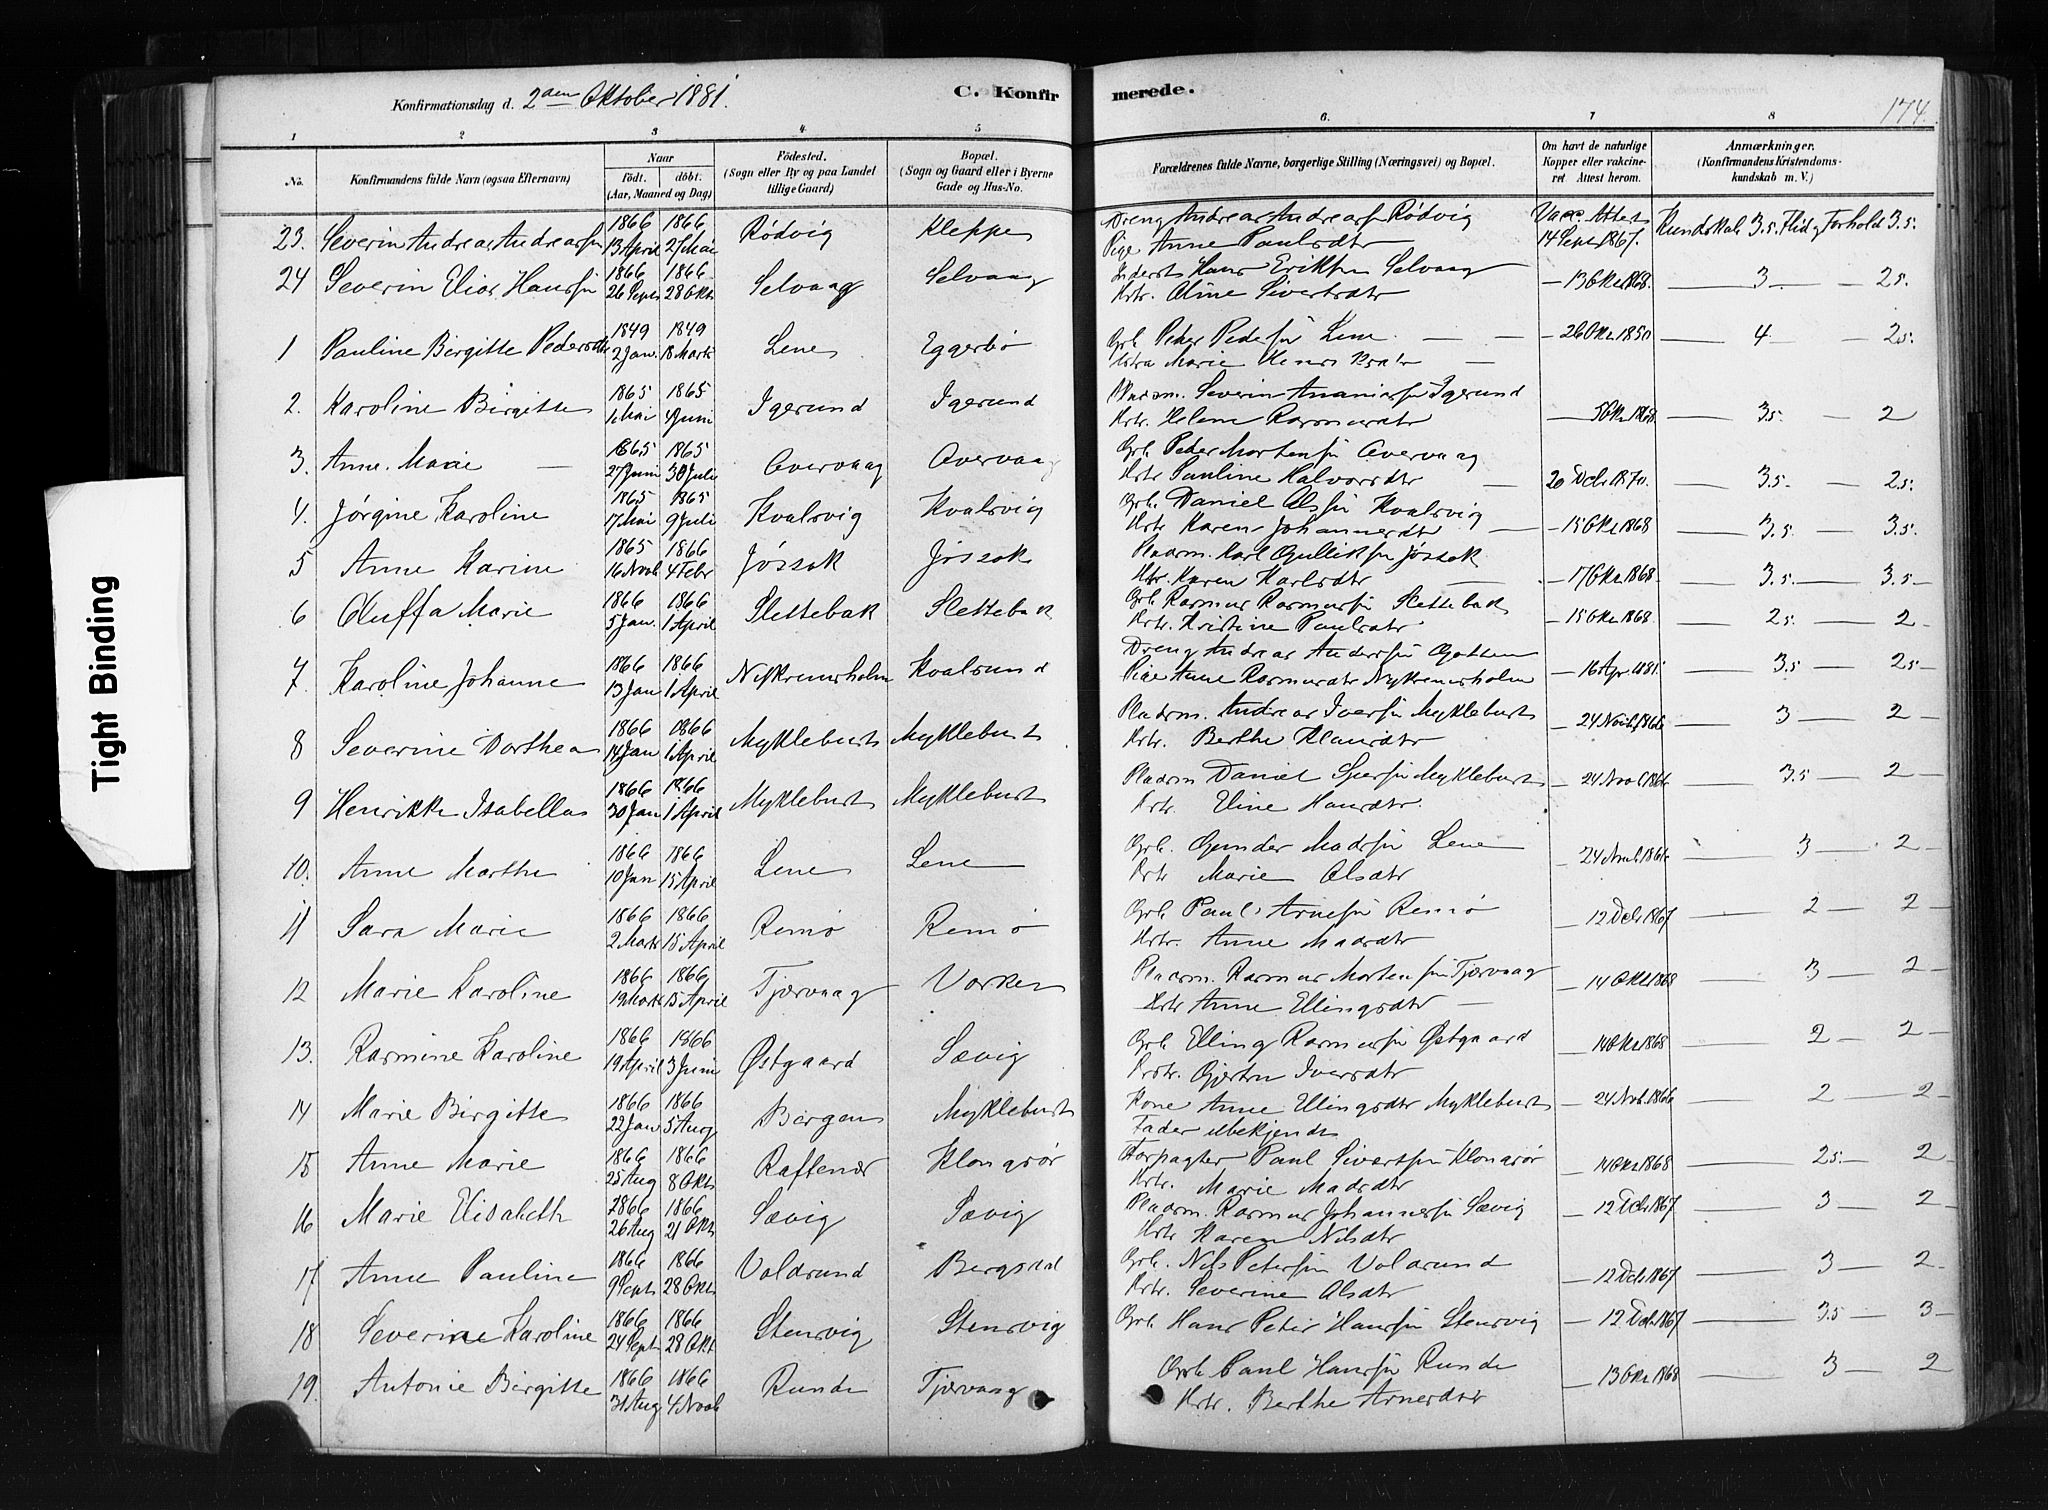 Konfirmationsdag d. 2den Oktober 1881.
C. Konfirmerede.
174.
1 2 3 4. 5 6. 7 8
No.
Konfirmandens fulde Navn (ogsaa Efternavn)
Naar
Født. døbt.
(Aar, Maaned og Dag)
Fødested.
(Sogn eller By og paa Landet tillige Gaard)
Bopæl.
(Sogn og Gaard eller i Byerne Gade og Hus-No.
Forældrenes fulde Navne, borgerlige Stilling (Næringsvei) og Bopæl.
Om havt de naturlige Kopper eller vakcineret Attest herom.
Anmærkninger.
(Konfirmandens Kristendomskundskab m. V.)
23. Severin Andreas Andreassen 1866 13 April 1866 27 Mai Rødvig Kleppe Dreng Andreas Andreassen Rødvig Vacc. Attest Kundskab 3.5. Flid og Forhold 3.5.
Pige Anne Paulsdtr 14 Sept 1867.
24 Severin Elias Hansen 1866 26 Sept 1866 28 Okt Selvaag Selvaag Inderst Hans Eriksen Selvaag — 13 Okt 1868. — 3 — 2.5.
Hstr. Oline Sivertsdtr
1 Pauline Birgitte Pedersdtr 1849 2 Jan. 1849 18 Marts Lene Eggesbø Grb. Peder Pedersen Lene — 26 Okt 1850 — 4. — 2.5.
Marie
2. Karoline Birgitte 1865 1 Mai 1865 4 Juni Igesund Igesund Pladsm. Severin Ananiassen Igesund — 5 Okt 1868. — 3.5. — 2
Hstr. Helene Rasmusdtr
3. Anne Marie — 1865 27 Juni 1865 30 Juli Overvaag Overvaag Grb. Peder Mortensen Overvaag
Hstr Pauline Halvorsdtr — 20 Dcb. 1870. — 3.5. — 2.5.
4. Jørgine Karoline 1865 17 Mai 1865 9 Juli Kvalsvig Kvalsvig Grb. Daniel Olsen Kvalsvig
Hstr Karen Johannesdtr — 15 Okt 1868 — 3.5 — 3.5.
5 Anne Karine 1865 16 Novb 1866 4 Febr Jøssok Jøssok Pladsm. Karl Gulliksen Jøssok
Hstr. Karen Karlsdtr — 17 Okt. 1868. — 3.5. — 3.5
6 Oluffa Marie 1866 5 Jan. 1866 1 April Slettebak Slettebak Grb Rasmus Rasmussen Slettebak
Hstr. Kristine Paulsdtr — 15 Okt 1868. — 2.5. — 2
7. Karoline Johanne 1866 13 Jan 1866 1 April Nykremsholm Kvalsund Dreng Andreas Anderssen
Pige Anne Rasmusdtr Nykremsholm — 16 Apr. 1881. — 3.5 — 2.5
8 Severine Dorthea 1866 14 Jan 1866 1 April Myklebust Myklebust Pladsm. Andreas Iversen Myklebust — 24 Novb. 1866 — 3 — 2
Hstr. Berthe Klausdtr
9 Henrikke Isabella 1866 30 Jan 1866 1 April Myklebust Myklebust Pladsm Daniel Myklebust — 24 Novb 1866 — 3.5 — 2
Hstr. Eline Hansdtr.
10. Anne Marthe 1866 10 Jan 1866 15 April Lene Lene Grb. Gunder Madssen Lene — 24 Novb. 1866. — 3 — 2
Hstr Marie Olsdtr
11 Sara Marie 1866 2 Marts 1866 15 April Remø Remø Grb. Paul Arnesen Remø — 12 Dcb. 1867 — 2 — 2
Hstr. Anne Madsdtr
12 Marie Karoline 1866 19 Marts 1866 15 April Tjørvaag Vorken Pladsm. Rasmus Mortensen Tjørvaag — 14 Okt 1868 — 3 — 2
Hstr Anne Ellingsdtr
13. Rasmine Karoline 1866 19 April 1866 3 Juni Østgaard Sævig Grb. Elling Rasmussen Østgaard — 14 Okt 1868 — 2 — 2
Hstr. Gjertru Iversdtr
14 Marie Birgitte 1866 22 Jan 1866 5 Aug Bergen Myklebust Kone Anne Ellingsdtr Myklebust — 24 Nob. 1866 — 2 — 2
Fader ubekjendt
15 Anne Marie 1866 25 Aug 1866 8 Okt Raftenes Klongsør Forpagter Paul Sivertsen Klongsør — 14 Okt 1868 — 2.5. — 2
Hstr. Marie Madsdtr
16 Marie Elisabeth 1866 26 Aug 1866 21 Okt Sævig Sævig Pladsm. Rasmus Johannessen Sævig — 12 Dcb. 1867 — 3 — 2
Hstr Karen Nilsdtr
17 Anne Pauline 1866 9 Sept 1866 28 Okt Voldsund Bergsdal Grb. Nils Petersen Voldsund — 12 Dcb. 1867 — 3 — 2
Hstr. Severine Olsdtr
18 Severine Karoline 1866 24 Sept 1866 28 Okt. Stensvig Stensvig Grb. Hans Peter Hanssen Stensvig — 12 Dcb. 1867 — 3.5 — 3
19. Antonie Birgitte 1866 31 Aug 1866 4 Novb Runde Tjørvaag Grb Paul Hanssen Runde — 13 Okt 1868 — 3 — 2
Hstr. Berthe Arnesdtr
Tight Binding